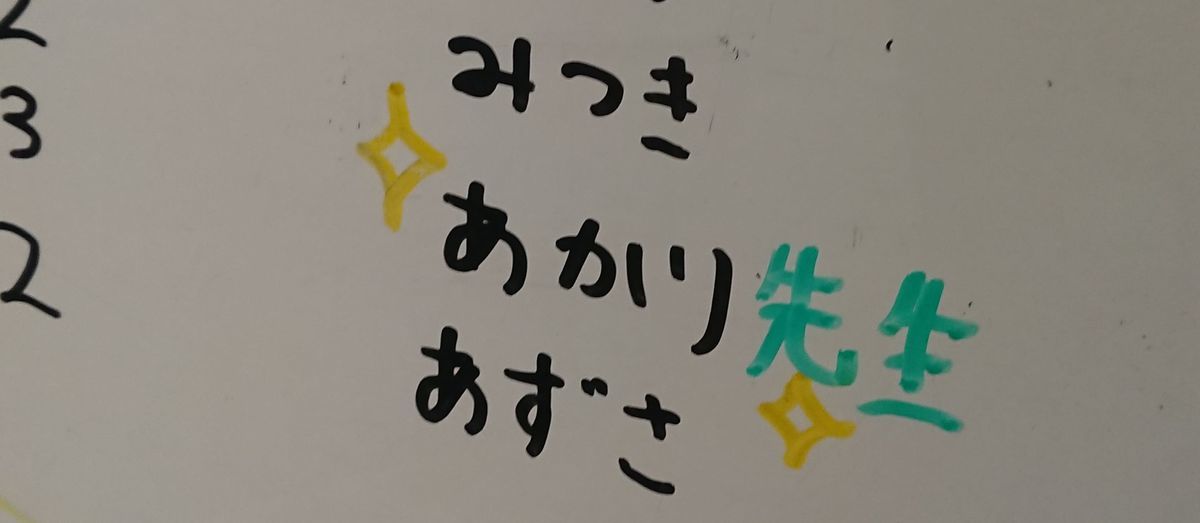 2
みつき
3
あかり先生
2
あずさ